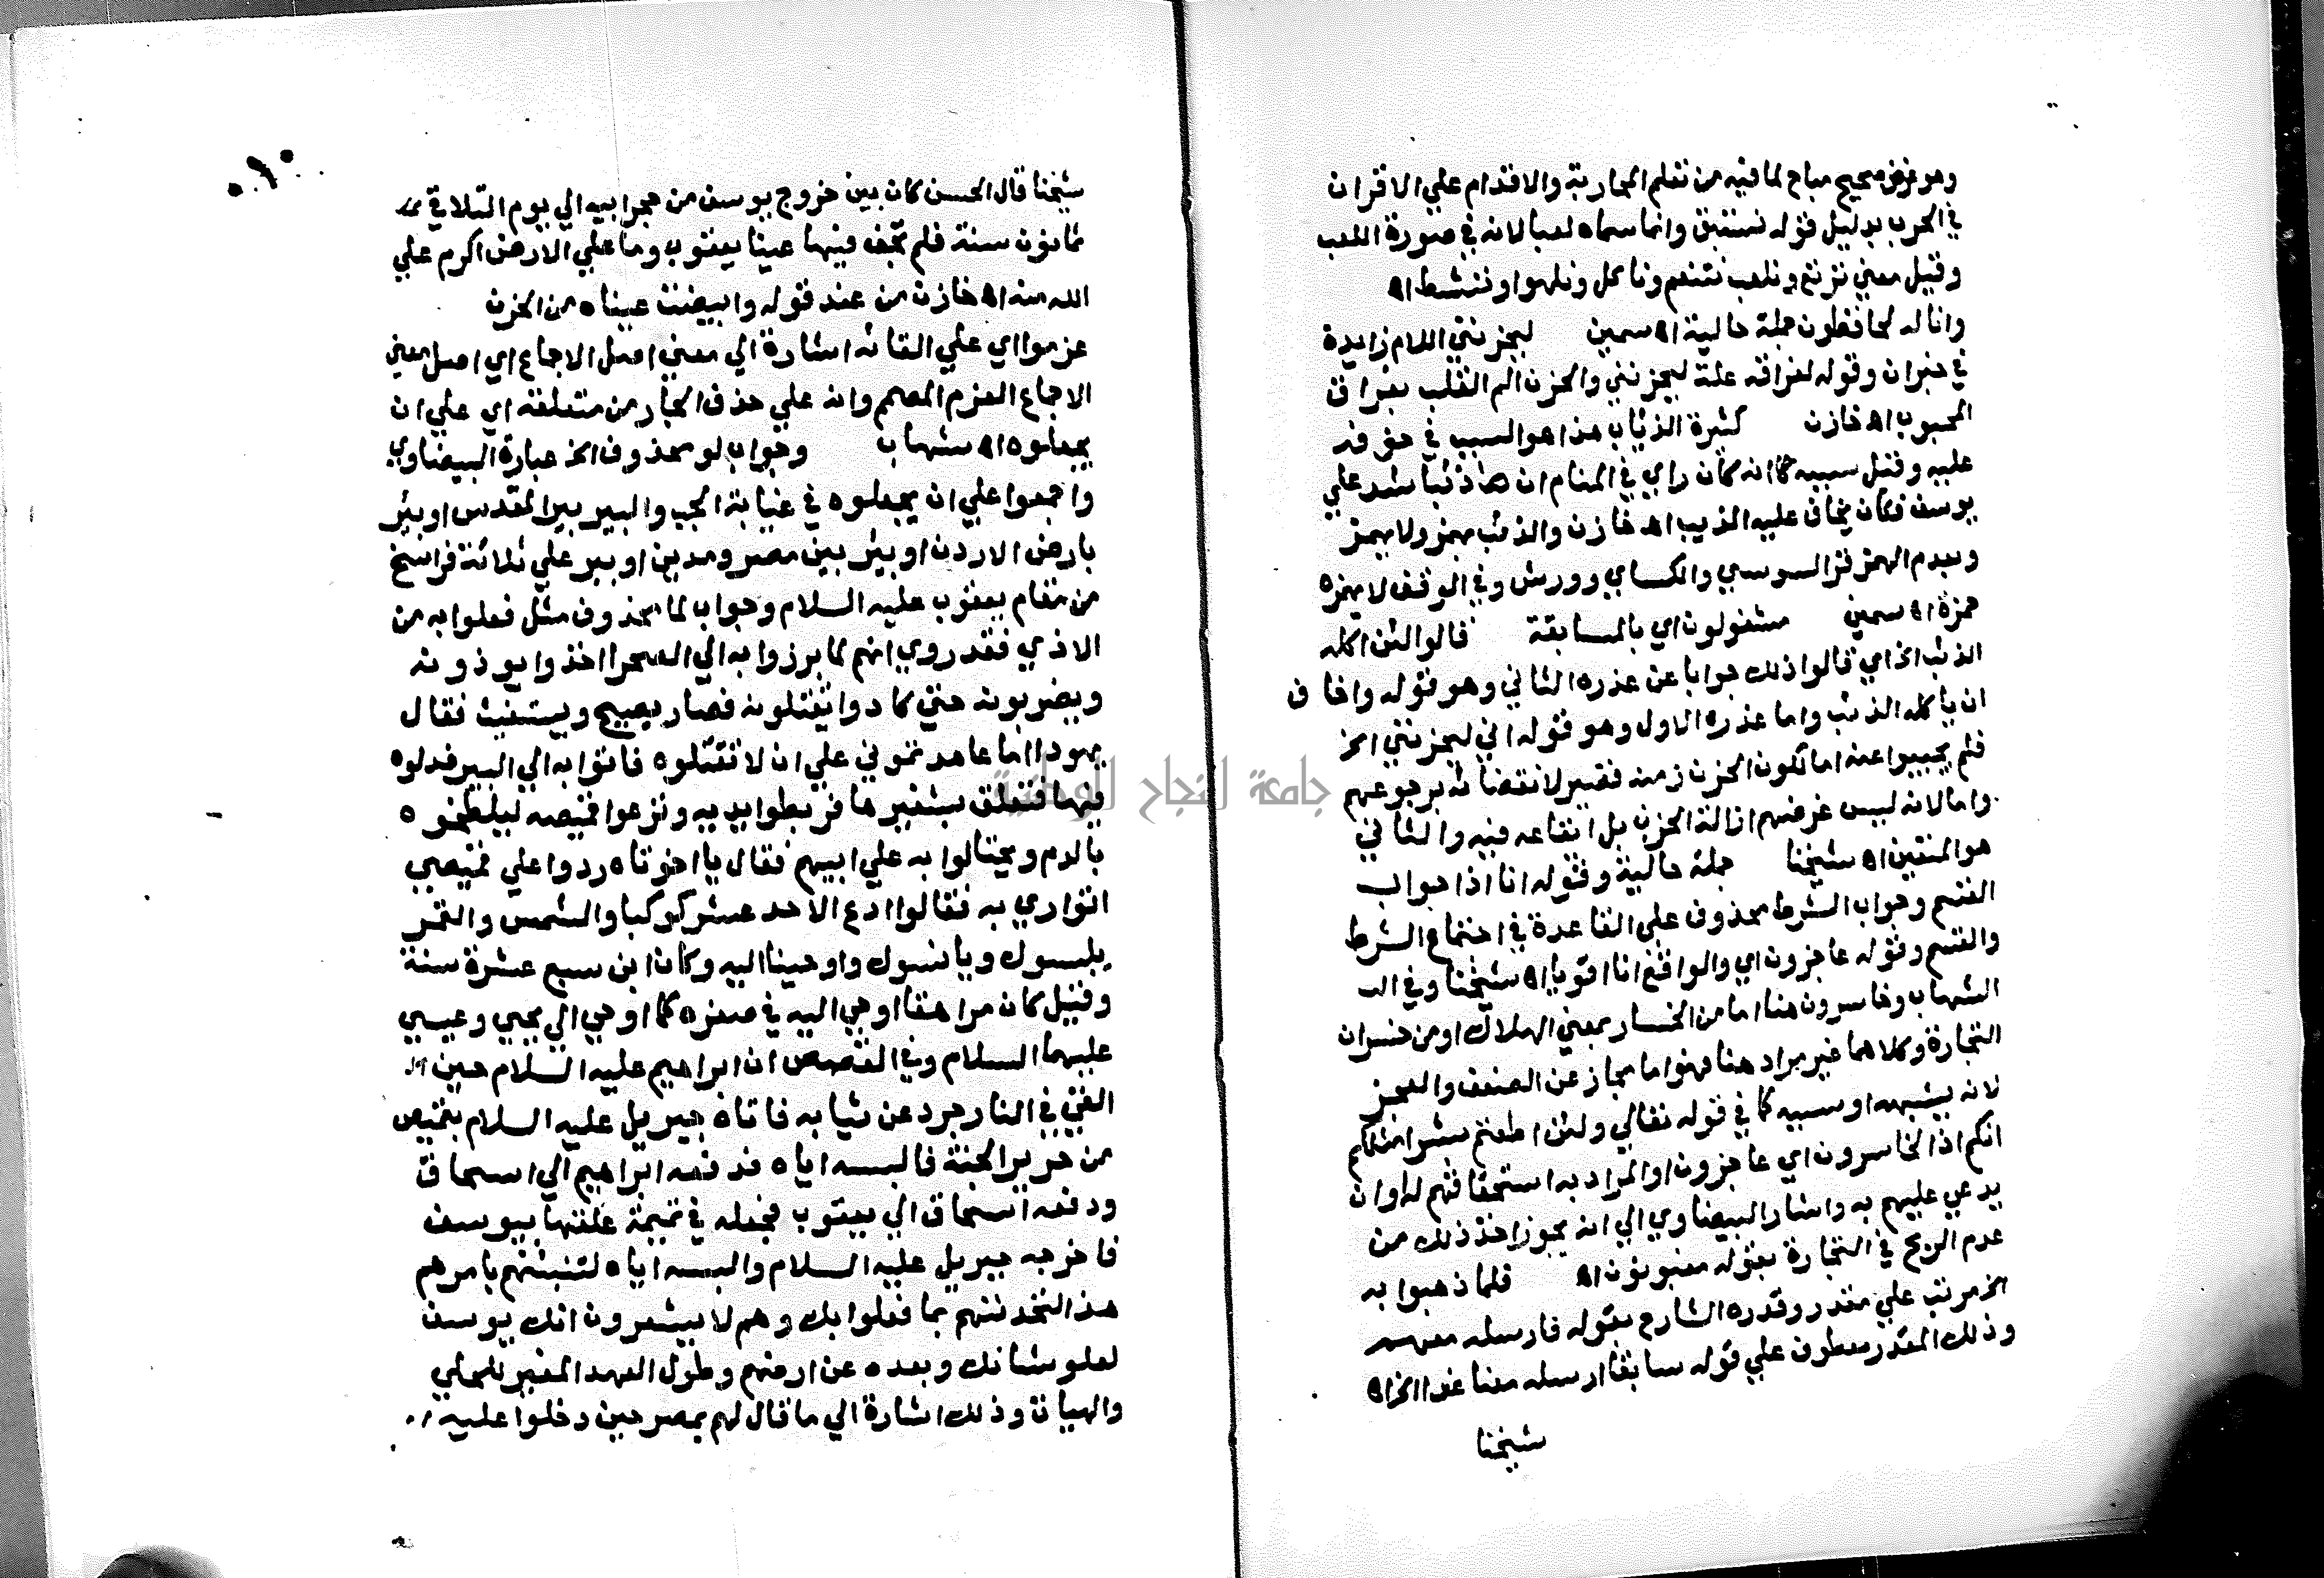 وهو غرض صحيح مباح لما فيه من تعلم المحاربة والاقدام علي الاقران
في الحرب بدليل قوله نستبق وانما سماه لعبا لانه في صورة اللعب
وقيل معني نرتع ونلعب نتنعم وناكل ونلهوا وننشط اه
وانا له لحافظون جملة حالية اه سمين ليحزنني اللام زايدة
في خبر ان وقوله لفراقه علة ليحزنني والحزن الم القلب بفراق
المحبوب اه خازن كثرة الذئاب هذا هو السبب في خوفه
عليه وقيل سببه انه كان راي في المنام ان ذئبا شد علي
يوسف فكان يخاف عليه الذيب اه خازن والذئب يهمز ولا يهمز
وبعدم الهمز قرا السوسي والكساي وورش وفي الوقف لا يهمزه
حمزة اه سمين مشغولون اي بالمسابقة قالوا لئن اكله
الذئب الخ اي قالوا ذلك جوابا عن عذره الثاني وهو قوله واخاف
ان ياكله الذئب واما عذره الاول وهو قوله اني ليحزنني الخ
فلم يجيبوا عنه اما لكون الحزن زمنه قصير لانقضائه برجوعهم
واما لانه ليس غرضهم ازالة الحزن بل ايقاعه فيه والثاني
هو المتعين اه شيخنا جملة حالية وقوله انا اذا جواب
القسم وجواب الشرط محذوف علي القاعدة في اجتماع الشرط
والقسم وقوله عاجزون اي والواقع انا اقويا اه شيخنا وفي
الشهاب وخاسرون هنا اما من الخسار بمعني الهلاك او من خسران
التجارة وكلاهما غير مراد هنا فهو اما مجاز عن الضعف والعجز
لانه يشبهه او سببه كما في قوله تعالي ولئن اطعتم بشرا مثلكم
انكم اذا لخاسرون اي عاجزون او المراد به استحقاقهم له او ان
يدعي عليهم به واشار البيضاوي الي انه يجوز اخذ ذلك من
عدم الربح في التجارة بقوله مغبونون اه فلما ذهبوا به
الخ مرتب علي مقدر وقدره الشارح بقوله فارسله معهم
وذلك المقدر معطوف علي قوله سابقا ارسله معنا غدا الخ اه
شيخنا
شيخنا قال الحسن كان بين خروج يوسف من حجر ابيه الي يوم التلاقي
ثمانون سنة فلم تجف فيها عينا يعقوب وما علي الارض اكرم علي
الله منه اه خازن من عند قوله وابيضت عيناه من الحزن
عزموا اي علي القائه اشارة الي معني اصل الاجماع اي اصل معني
الاجماع العزم المصمم وانه علي حذف الجار من متعلقه اي علي ان
يجعلوه اه شهاب وجواب لو محذوف الخ عبارة البيضاوي
واجمعوا علي ان يجعلوه في غيابة الجب والبير بير المقدس او بئر
بارض الاردن او بئر بين مصر ومدين او بير علي ثلاثة فراسخ
من مقام يعقوب عليه السلام وجواب لما محذوف مثل فعلوا به من
الاذي فقد روي انهم لما برزوا به الي الصحرا اخذوا يوذونه
ويضربونه حتي كادوا يقتلونه فصار يصيح ويستغيث فقال
يهودا اما عاهدتموني علي ان لا تقتلوه فاتوا به الي البير فدلوه
فيها فتعلق بشفيرها فربطوا يديه ونزعوا قميصه ليلطخوه
بالدم ويحتالوا به علي ابيهم فقال يا اخوتاه ردوا علي قميصي
اتواري به فقالوا ادع الاحد عشر كوكبا والشمس والقمر
يلبسوك ويانسوك واوحينا اليه وكان ابن سبع عشرة سنة
وقيل كان مراهقا اوحي اليه في صغره كما اوحي الي يحيي وعيسي
عليهما السلام وفي القصص ان ابراهيم عليه السلام حين
القي في النار جرد عن ثيابه فاتاه جبريل عليه السلام بقميص
من حرير الجنة فالبسه اياه فدفعه ابراهيم الي اسحاق
ودفعه اسحاق الي يعقوب فجعله في تميمة علقها بيوسف
فاخرجه جبريل عليه السلام والبسه اياه لتنبئنهم بامرهم
هذا لتحدثنهم بما فعلوا بك وهم لا يشعرون انك يوسف
لعلو شانك وبعده عن اوهامهم وطول العهد المغير للحلي
والهيات وذلك اشارة الي ما قال لهم بمصر حين دخلوا عليه
جامعة النجاح الوطنية